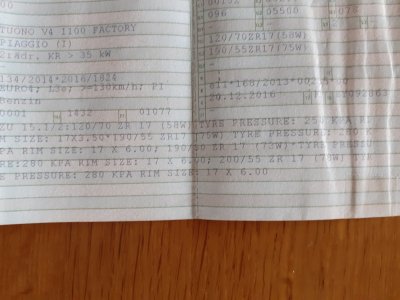 TUONO V4 1100 FACTORY
PIAGGIO (I)
2:Kdr. KR > 35 kW
096
05500
078
120/70ZR17(58W)
190/55ZR17(75W)
134/2014*2016/1824
EURO4; L3e; >=130km/h; PI
Benzin
e11*168/2013*00
20.12.2016
0001
1432
01077
ZU 15.1/2:120/70 ZR 17 (58W)*TYRE PRESSURE: 250 KPA RI
M SIZE: 17X3.50*190/55 ZR17 (75W) TYRE PRESSURE: 280 K
PA RIM SIZE: 17 X 6.00; 190/50 ZR 17 (73W)*TYRE PRESSU
RE:280 KPA RIM SIZE: 17 X 6.00; 200/55 ZR 17 (78W) TYR
E PRESSURE: 280 KPA RIM SIZE: 17 X 6.00